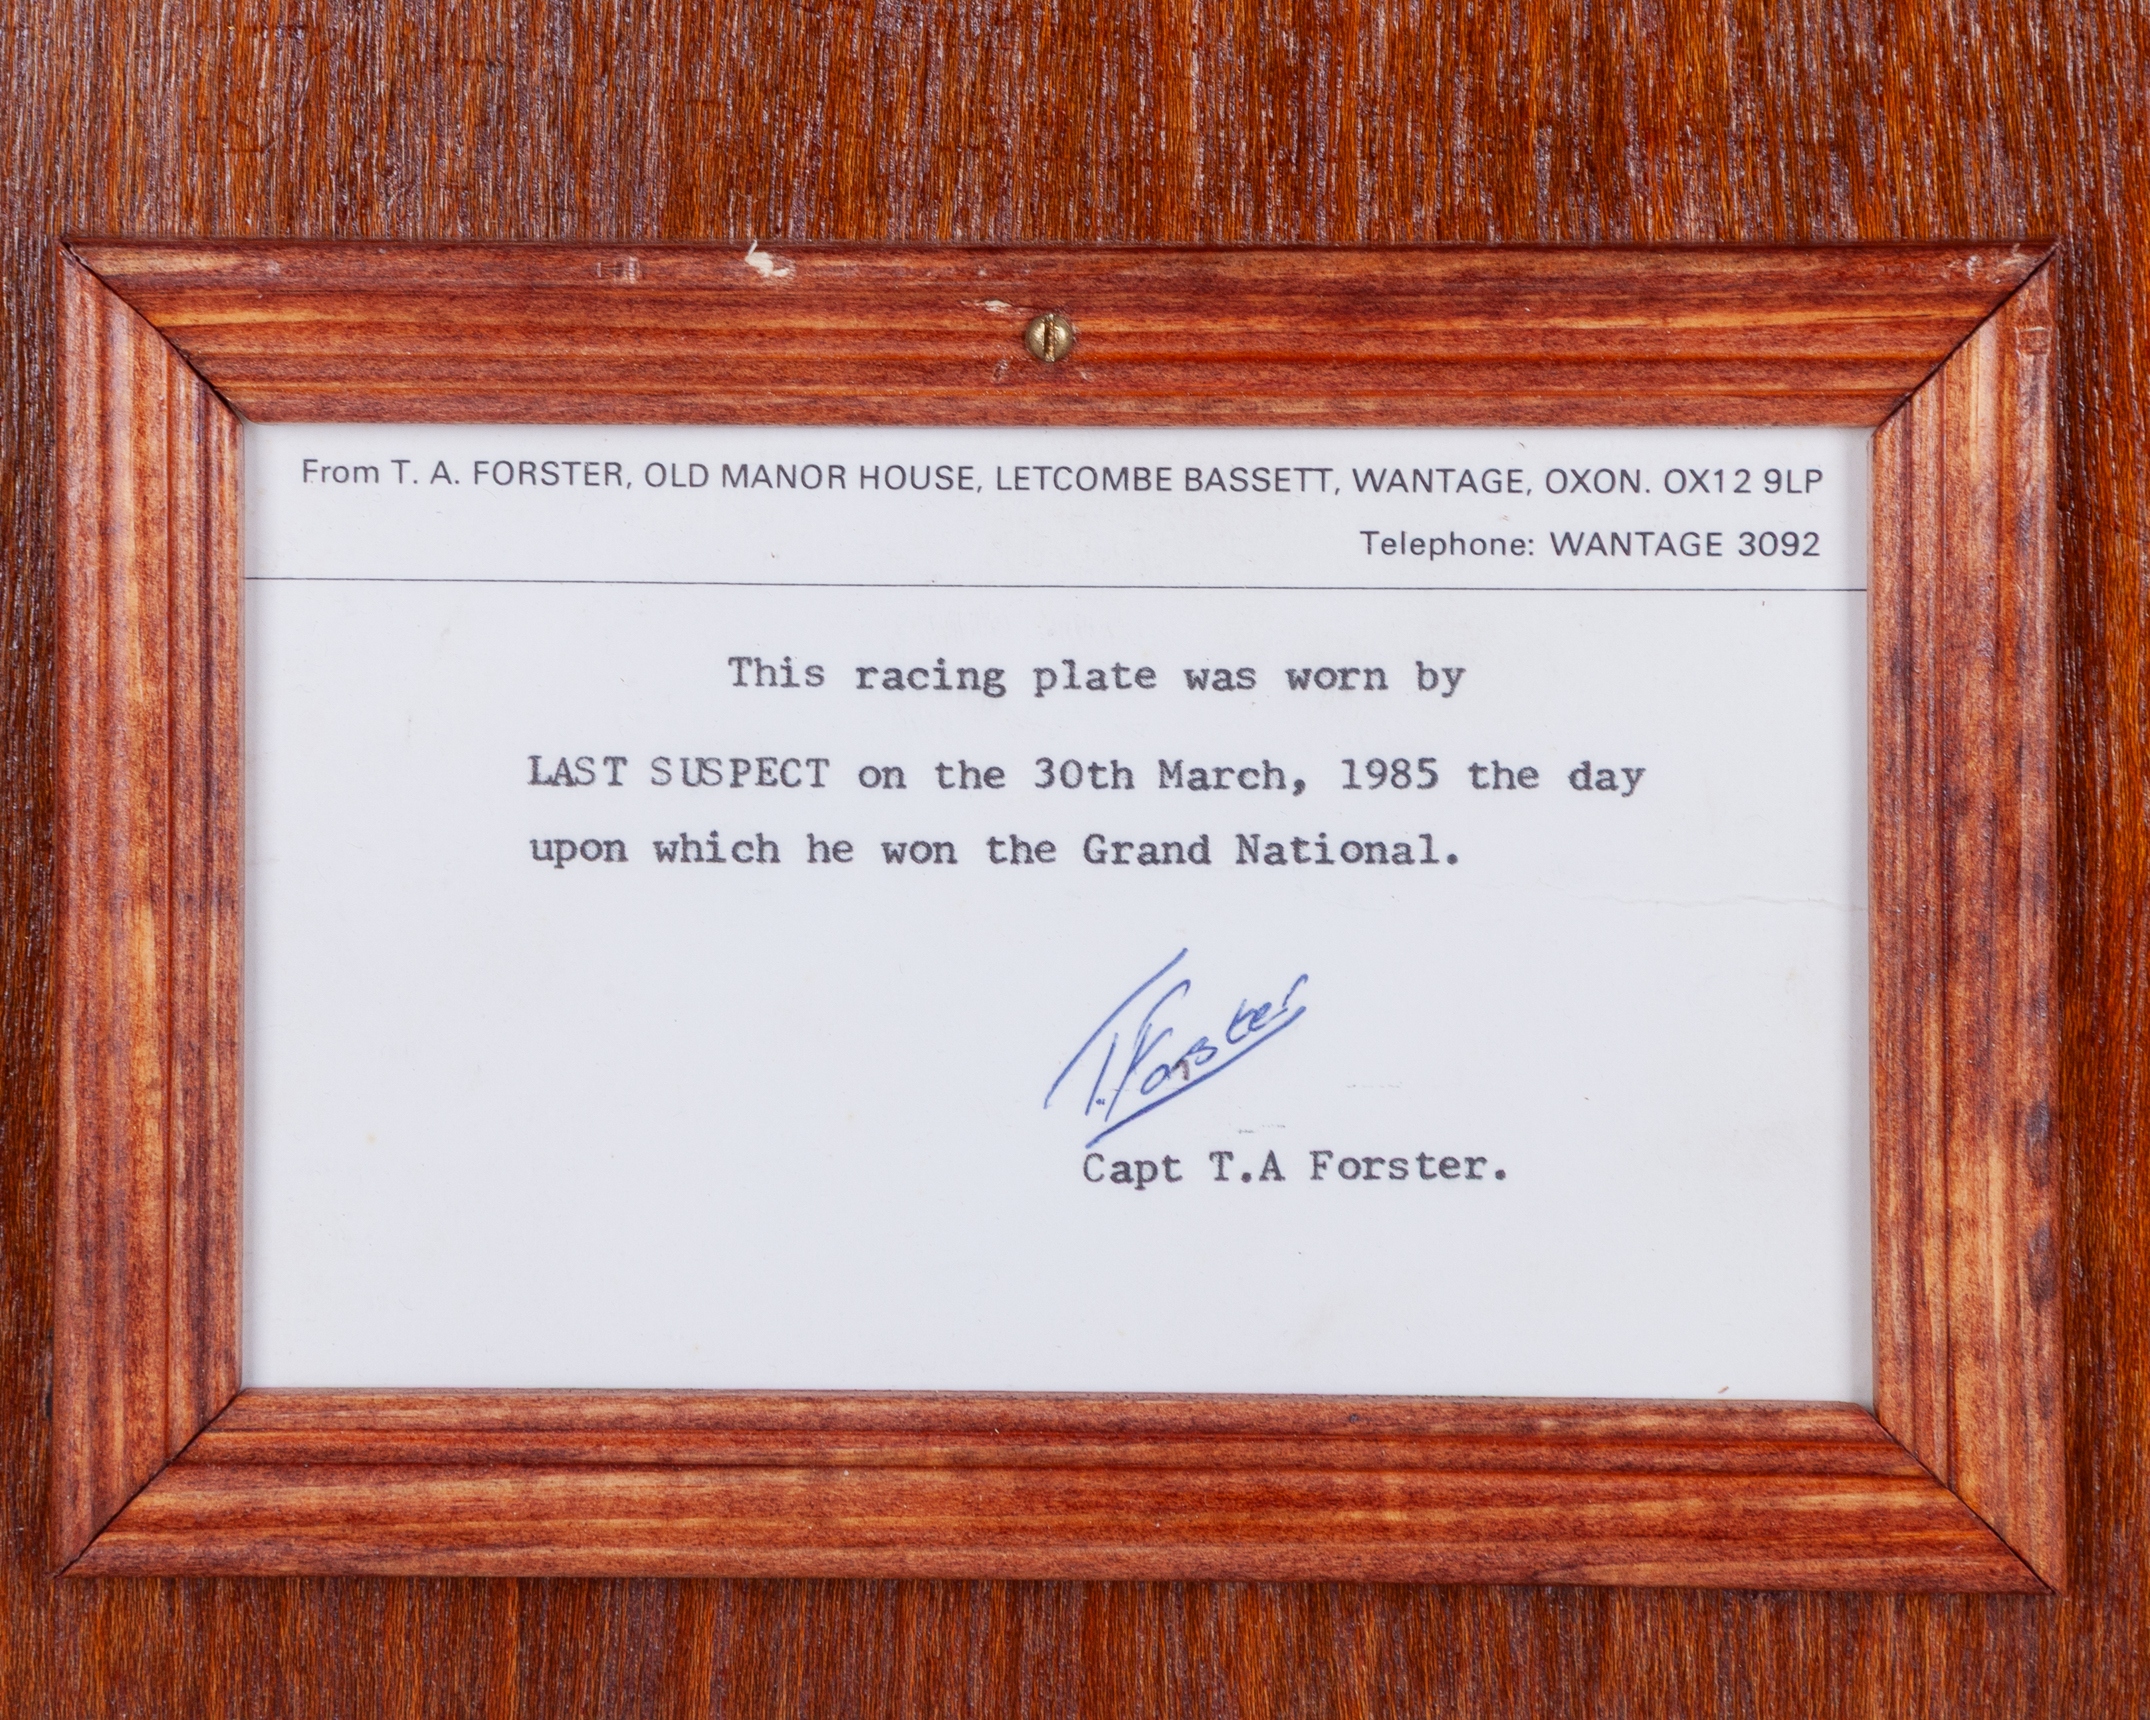 From T. A. FORSTER, OLD MANOR HOUSE, LETCOMBE BASSETT, WANTAGE, OXON. OX12 9LP
Telephone: WANTAGE 3092
This racing plate was worn by
LAST SUSPECT on the 30th March, 1985 the day
upon which he won the Grand National.
T. Forster
Capt T.A Forster.